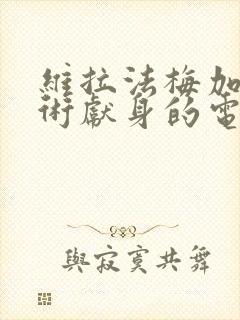 維拉法梅加
術獻身的電
與寂寞共舞